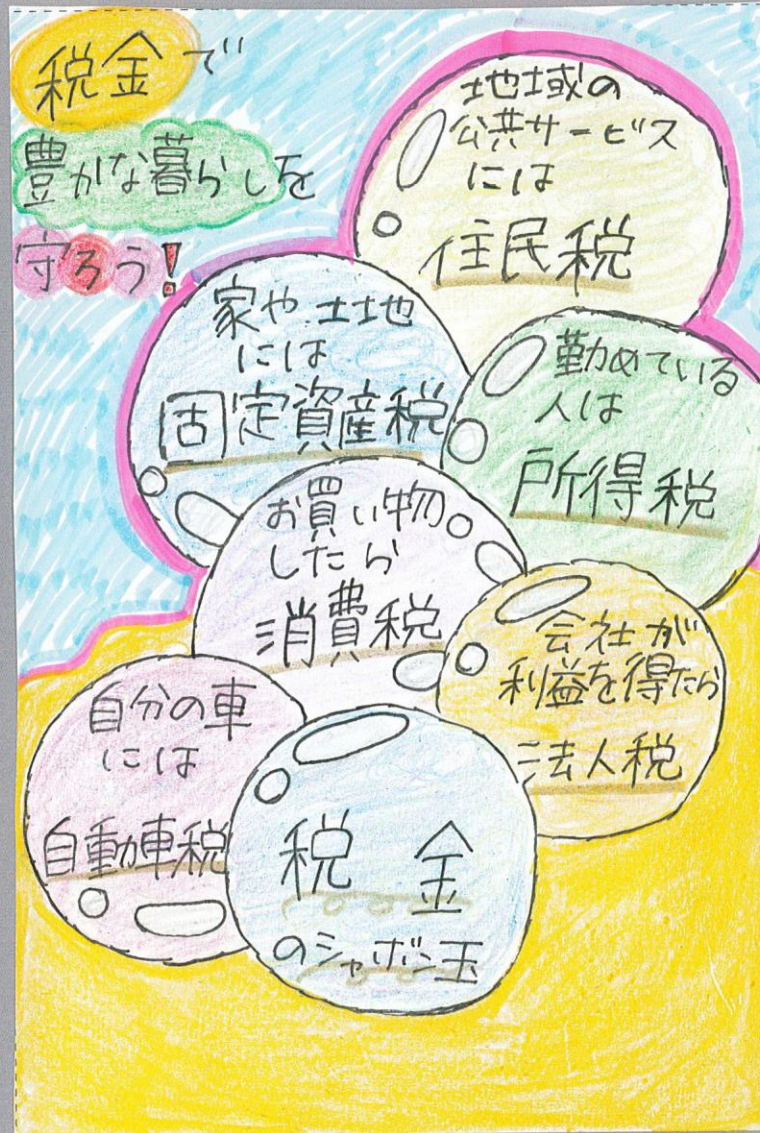 税金で
豊かな暮らしを
守ろう!
地域の
公共サービス
には
住民税
家や土地
には
固定資産税
勤めている
人は
所得税
お買い物
したら
消費税
会社が
利益を得たら
法人税
自分の車
には
自動車税
税金
のシャボン玉